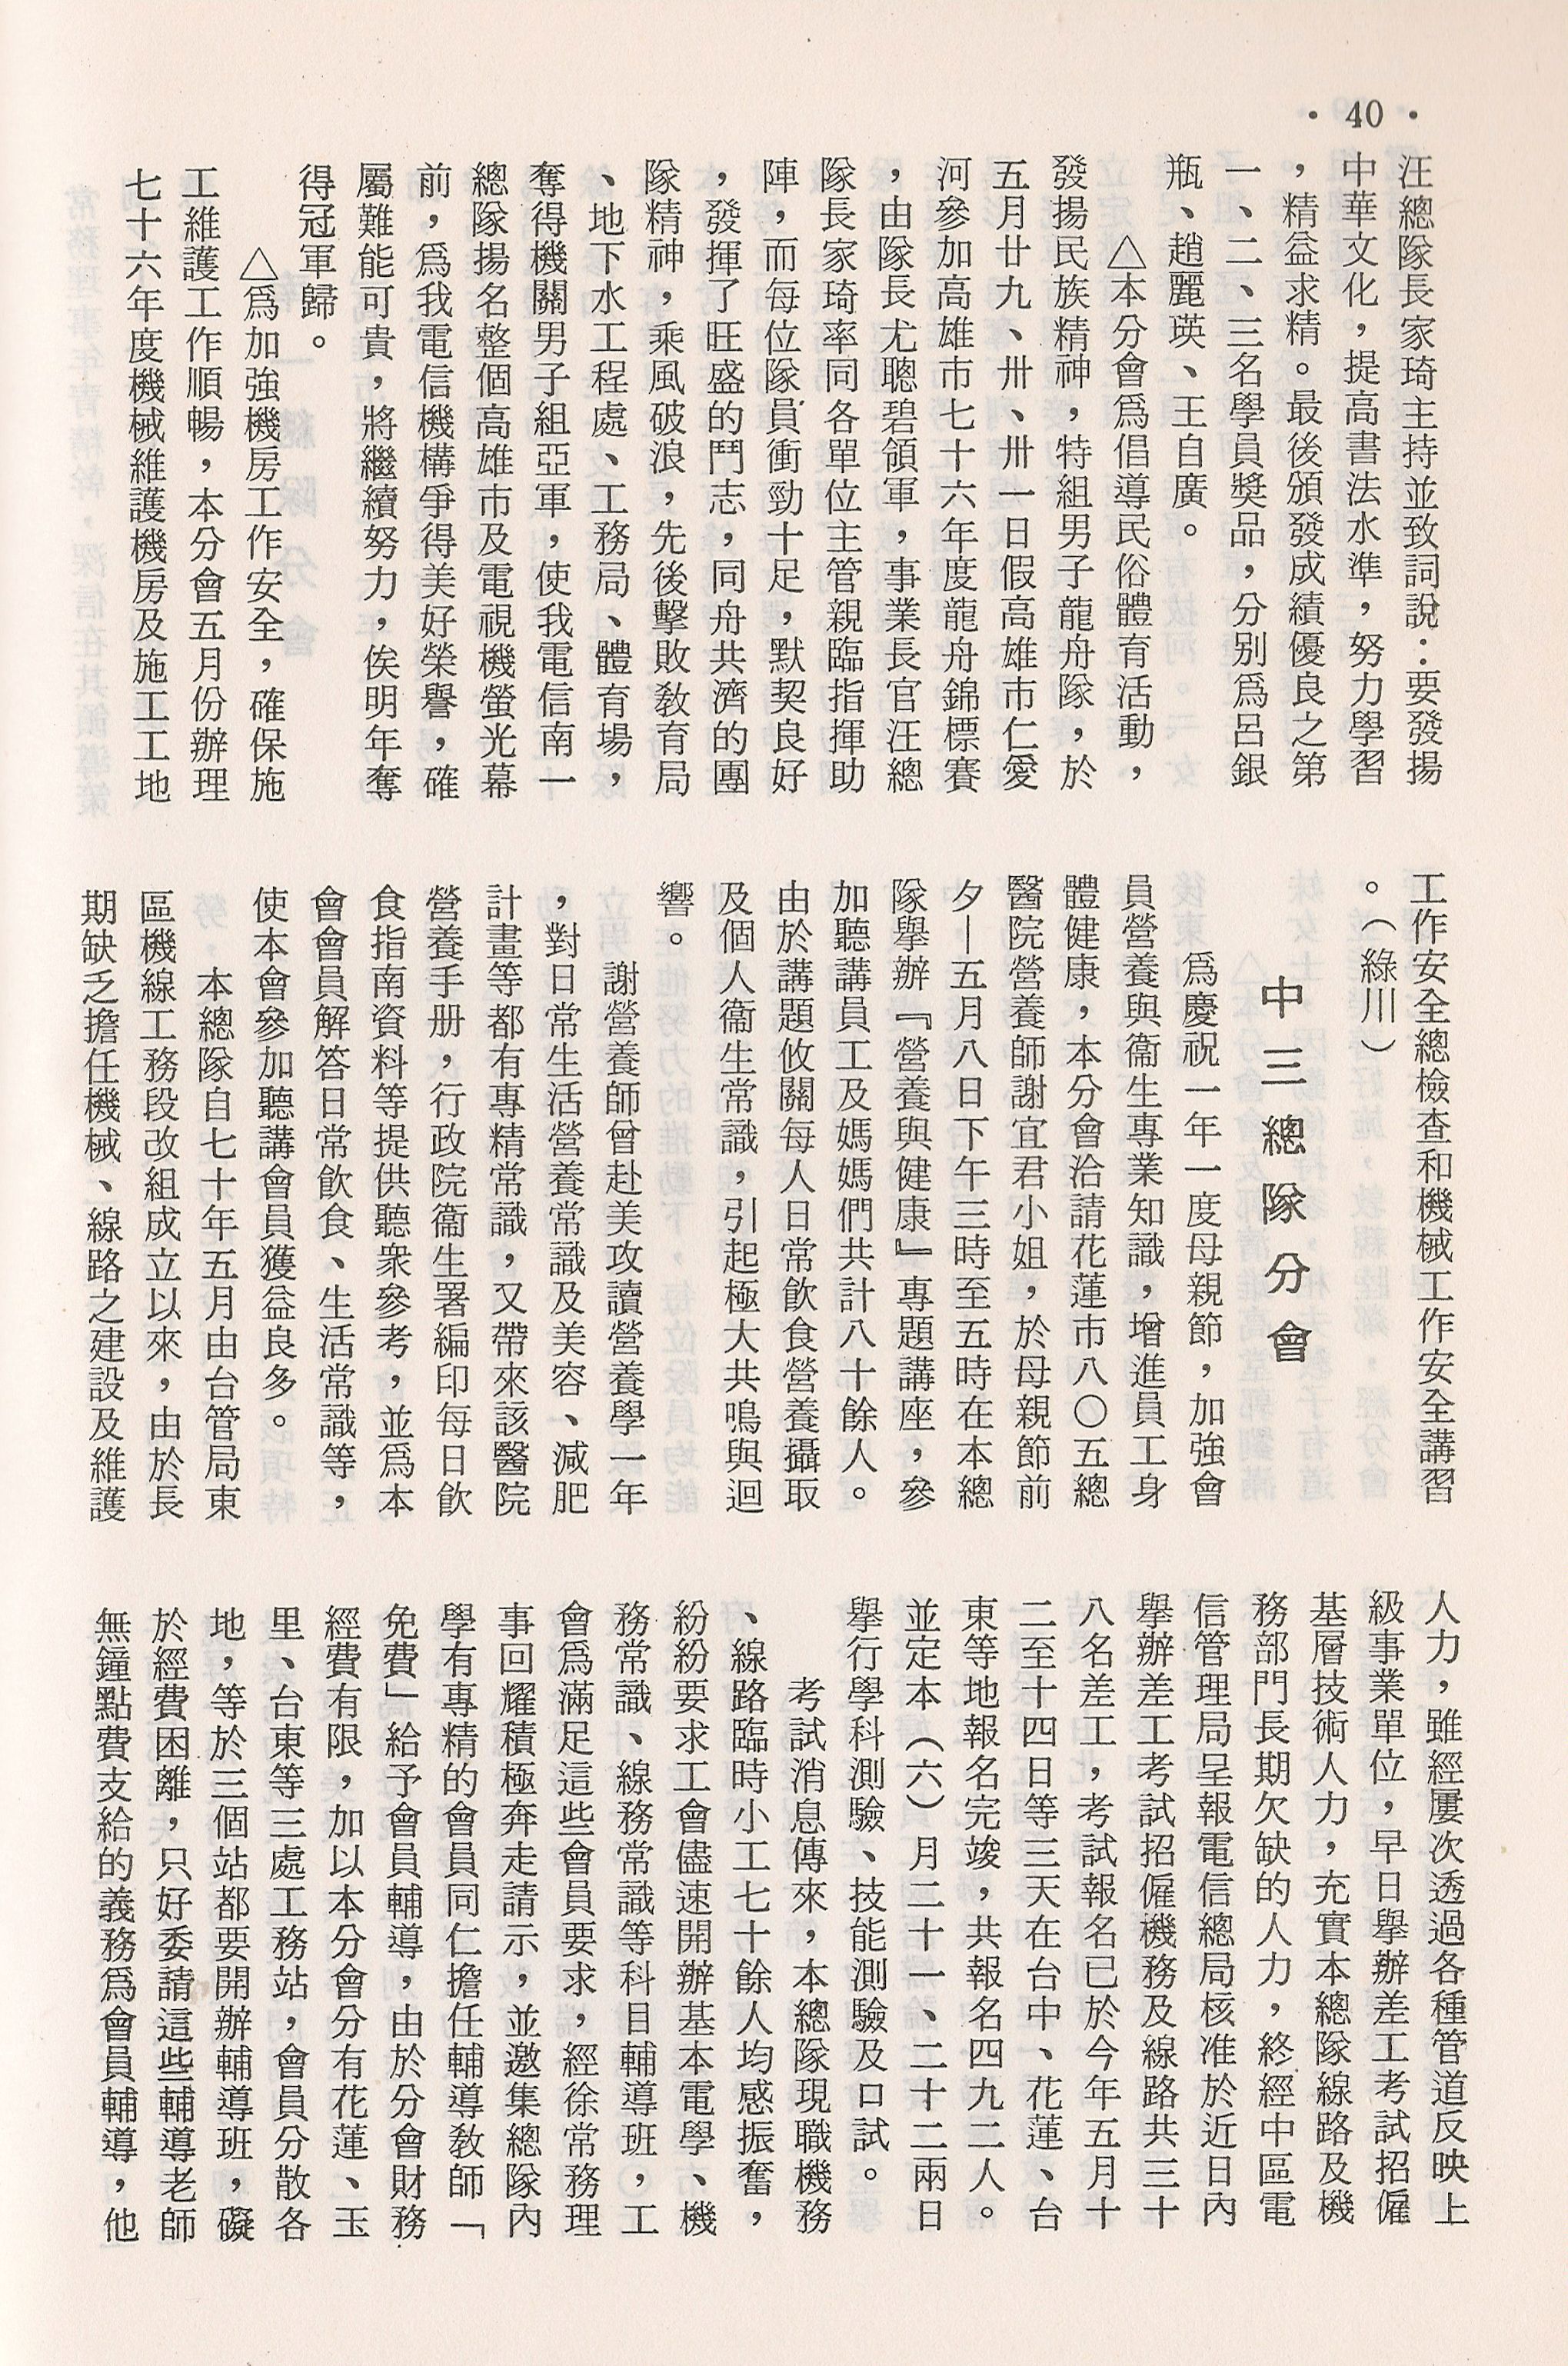 • 40 •
汪總隊長家琦主持並致詞說：要發揚
中華文化，提高書法水準，努力學習
，精益求精。最後頒發成績優良之第
一、二、三名學員獎品，分別爲呂銀
瓶、趙麗瑛、王自廣。
△本分會爲倡導民俗體育活動，
發揚民族精神，特組男子龍舟隊，於
五月廿九、卅、卅一日假高雄市仁愛
河參加高雄市七十六年度龍舟錦標賽
，由隊長尤聰碧領軍，事業長官汪總
隊長家琦率同各單位主管親臨指揮助
陣，而每位隊員衝勁十足，默契良好
，發揮了旺盛的鬥志，同舟共濟的團
隊精神，乘風破浪，先後擊敗教育局
、地下水工程處、工務局、體育場，
奪得機關男子組亞軍，使我電信南一
總隊揚名整個高雄市及電視機螢光幕
前，爲我電信機構爭得美好榮譽，確
屬難能可貴，將繼續努力，俟明年奪
得冠軍歸。
△爲加強機房工作安全，確保施
工維護工作順暢，本分會五月份辦理
七十六年度機械維護機房及施工工地
工作安全總檢查和機械工作安全講習
。（綠川）
中三總隊分會
爲慶祝一年一度母親節，加強會
員營養與衞生專業知識，增進員工身
體健康，本分會洽請花蓮市八〇五總
醫院營養師謝宜君小姐，於母親節前
夕—五月八日下午三時至五時在本總
隊舉辦『營養與健康』專題講座，參
加聽講員工及媽媽們共計八十餘人。
由於講題攸關每人日常飲食營養攝取
及個人衞生常識，引起極大共鳴與迴
響。
謝營養師曾赴美攻讀營養學一年
，對日常生活營養常識及美容、減肥
計畫等都有專精常識，又帶來該醫院
營養手册，行政院衞生署編印每日飲
食指南資料等提供聽衆參考，並爲本
會會員解答日常飲食、生活常識等，
使本會參加聽講會員獲益良多。
本總隊自七十年五月由台管局東
區機線工務段改組成立以來，由於長
期缺乏擔任機械、線路之建設及維護
人力，雖經屢次透過各種管道反映上
級事業單位，早日舉辦差工考試招僱
基層技術人力，充實本總隊線路及機
務部門長期欠缺的人力，終經中區電
信管理局呈報電信總局核准於近日內
舉辦差工考試招僱機務及線路共三十
八名差工，考試報名已於今年五月十
二至十四日等三天在台中、花蓮、台
東等地報名完竣，共報名四九二人。
並定本（六）月二十一、二十二兩日
舉行學科測驗、技能測驗及口試。
考試消息傳來，本總隊現職機務
、線路臨時小工七十餘人均感振奮，
紛紛要求工會儘速開辦基本電學、機
務常識、線務常識等科目輔導班，工
會爲滿足這些會員要求，經徐常務理
事回耀積極奔走請示，並邀集總隊內
學有專精的會員同仁擔任輔導教師「
免費」給予會員輔導，由於分會財務
經費有限，加以本分會分有花蓮、玉
里、台東等三處工務站，會員分散各
地，等於三個站都要開辦輔導班，礙
於經費困離，只好委請這些輔導老師
無鐘點費支給的義務爲會員輔導，他